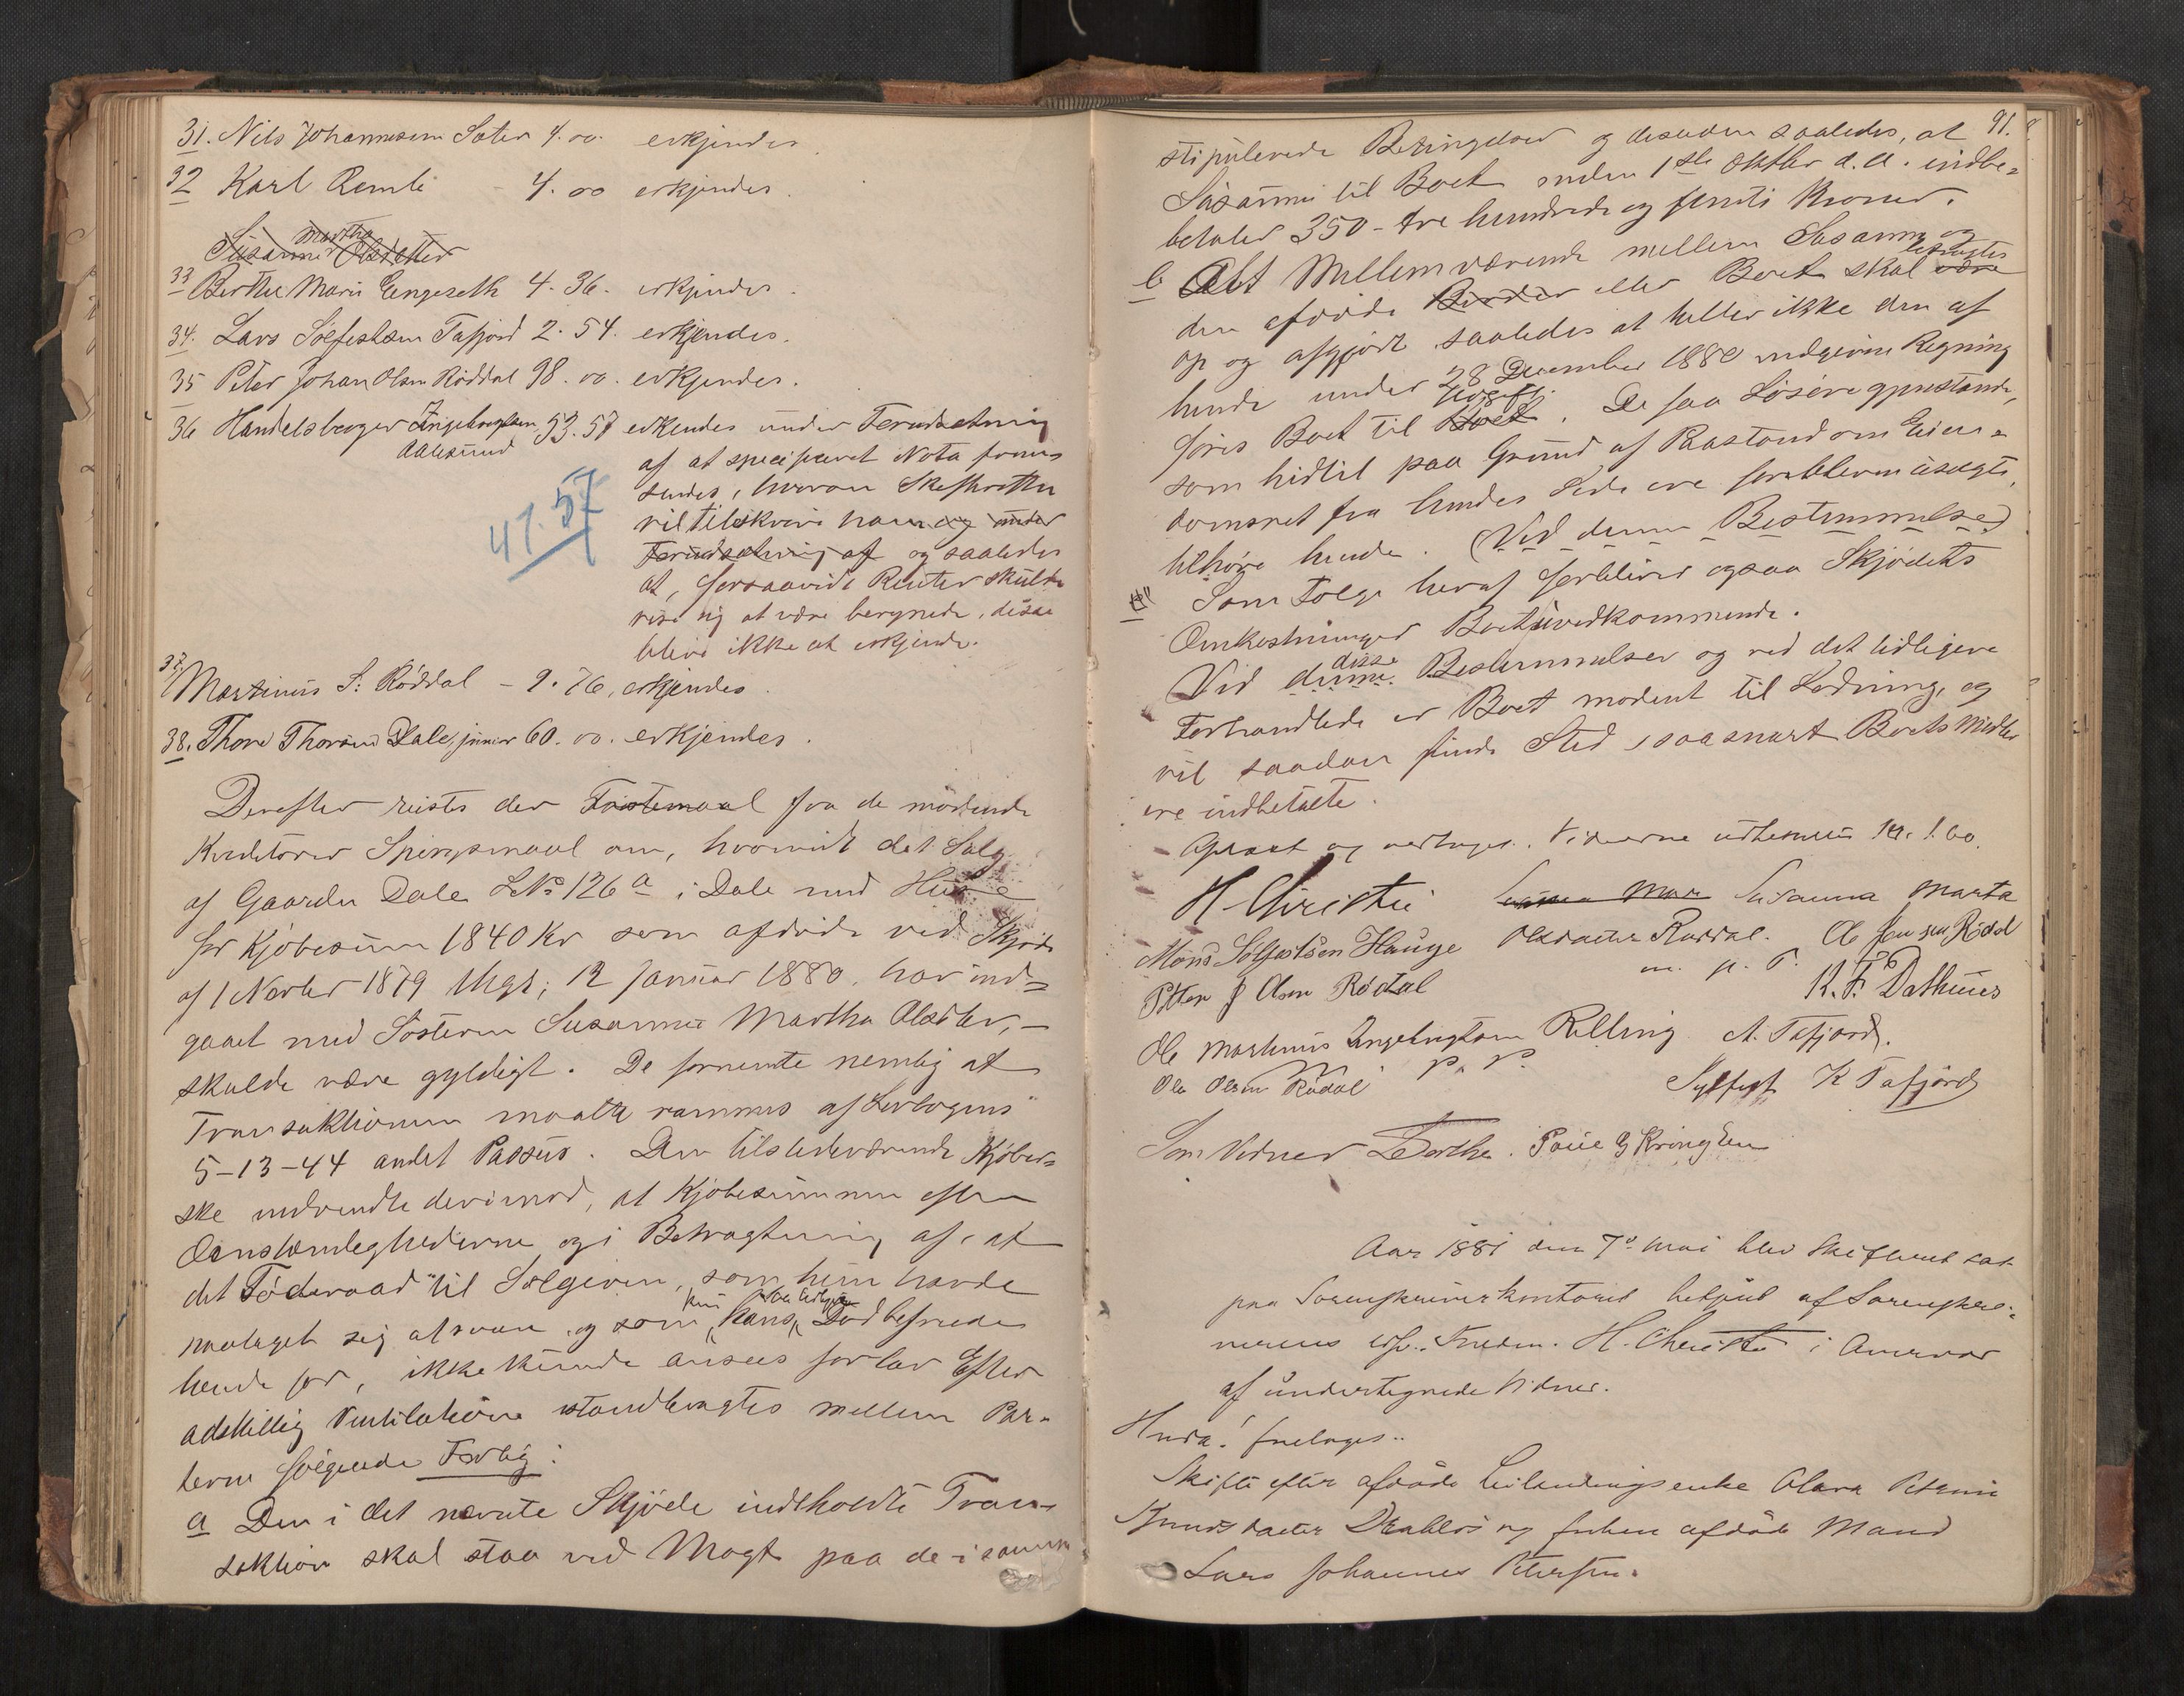 31. Nils Johannesen Sæter 4.00 erkjendes.
32 Karl Remli - 4.00 erkjendes.
Martha
Susanna Olsdatter
33 Berthe Marie Engeseth 4.36. erkjendes.
34. Lars Sølfestsen Tafjord 2.54. erkjendes.
35 Peter Johan Olsen Røddal 98.00. erkjendes.
36 Handelsborger Ingebrigtsen, 53.57 erkendes under Forudsætning
Aalesund
af at specificeret Nota frem-
sendes, hvorom Skifteretten
47.57
vil tilskrive ham og under
Forudsætning af og saaledes
at, forsaavidt Renter skulde
vise sig at være beregnede, disse
blive ikke at erkjende.
37. Martinus S. Røddal - 9.76, erkjendes.
38. Thore Thoresen Dale, junior 60.00. erkjendes.
Derefter reistes der fra de mødende
Kreditorer Spørgsmaal om, hvorvidt det Salg
af Gaarden Dale LNo 126a i Dale med Huse
for Kjøbesum 1840 Kr som afdøde ved Skjøde
af 1 Novbr 1879 thgl. 12 Januar 1880 har ind-
gaaet med Søsteren Susanna Martha Olsdtr, -
skulde være gyldigt. De formente nemlig at
Transaktionen maatte rammes af Lovbogens
5-13-44 andet Passus. Den tilstedeværende Kjøber-
ske indvendte derimod, at Kjøbesummen efter
Omstændighederne og i Betragtning af, at
det Føderaad til Sælgeren, som hun havde
paataget sig at svare, og som kun hans Død befriede
hende for, ikke kunde ansees for lav. Efter
adskillig Ventilation istandbragtes mellem Par-
terne følgende Forlig:
a Den i det nævnte Skjøde indeholdte Tran-
saktion skal staa ved Magt paa de i samme
91.
stipulerede Betingelser og desuden saaledes, at
Susanna til Boet inden 1ste Oktbr d.A. indbe-
betaler 350 - tre hundrede og femti Kroner.
b Alt Mellemværende mellem Susanna og
den afdøde Broder eller Boet skal være betragtes
op og afgjort saaledes at heller ikke den af
hende under 28 December 1880 indgivne Regning
føres Boet til Udgift. De faa Løsøregjenstande,
som hidtil paa Grund af Paastand om Eien-
domsret fra hendes Side ere forblevne usolgte,
tilhøre hende. (Ved denne Bestemmelse)
Som Følge heraf forbliver ogsaa Skjødets
Omkostninger Boet uvedkommende.
Ved denne disse Bestemmelser og ved det tidligere
Forhandlede er Boet modent til Slutning, og
vil saadan finde Sted, saasnart Boets Midler
ere indbetalte.
Oplæst og vedtaget. Vidnerne Kr. 1.60.
H. Christie Susanna Marta
Mons Sølfestsen Hauge Olsdatter Røddal. Ole Jensen Rødal
m. p. P.
Petter J Olsen Rødal K. F. Dathues
Ole Martinus Ingebrigtsen Relling A. Tafjord.
Ole Olsen Rødal p. P. Sylfest K Tafjord
Som Vidner LDorthe. Poul G Kringsen
Aar 1881 den 7de Mai blev Skifteret sat
paa Sorenskriverkontoret betjent af Sorenskri-
verens edsv. Fuldm. H. Christie i Overvær
af undertegnede Vidner.
Hvorda! foretoges:
Skifte efter afdøde Leilændingsenke Olava Petrine
Knudsdatter Drabløs og forhen afdøde Mand
Lars Johannes Petersen.